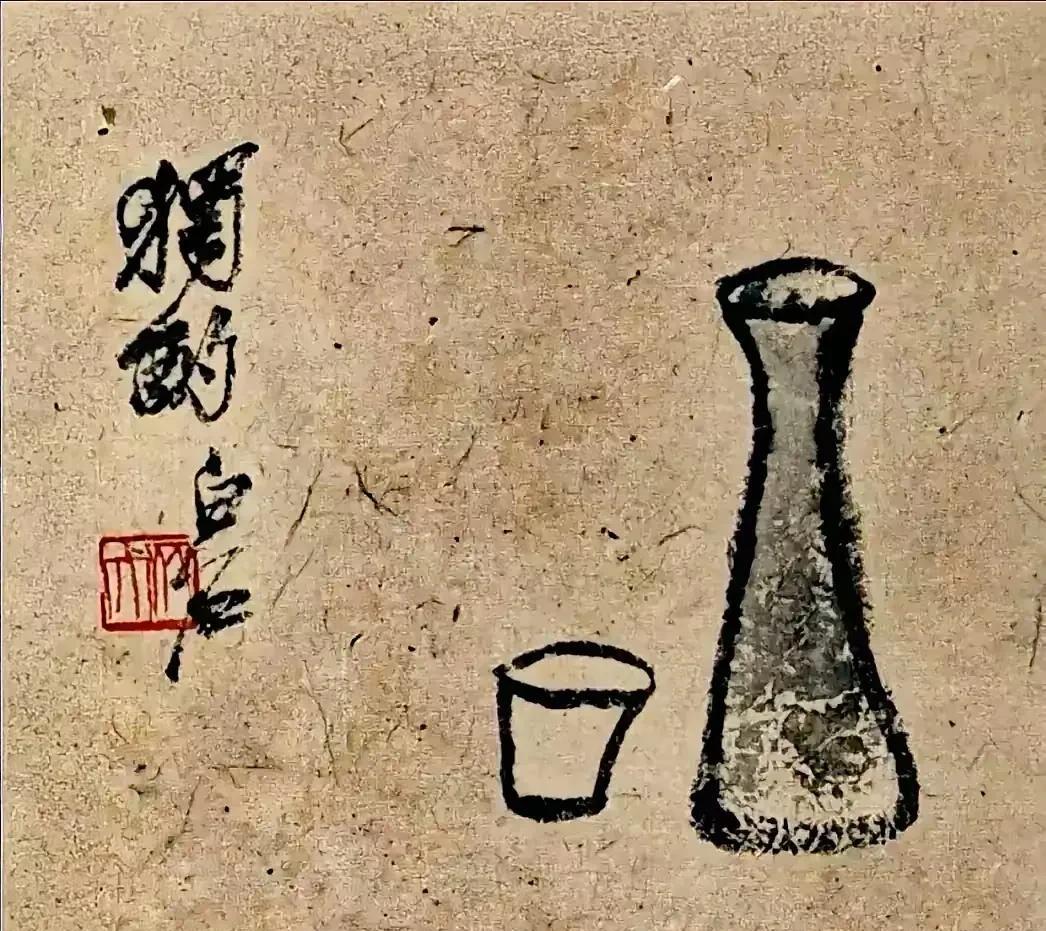 獨酌白石